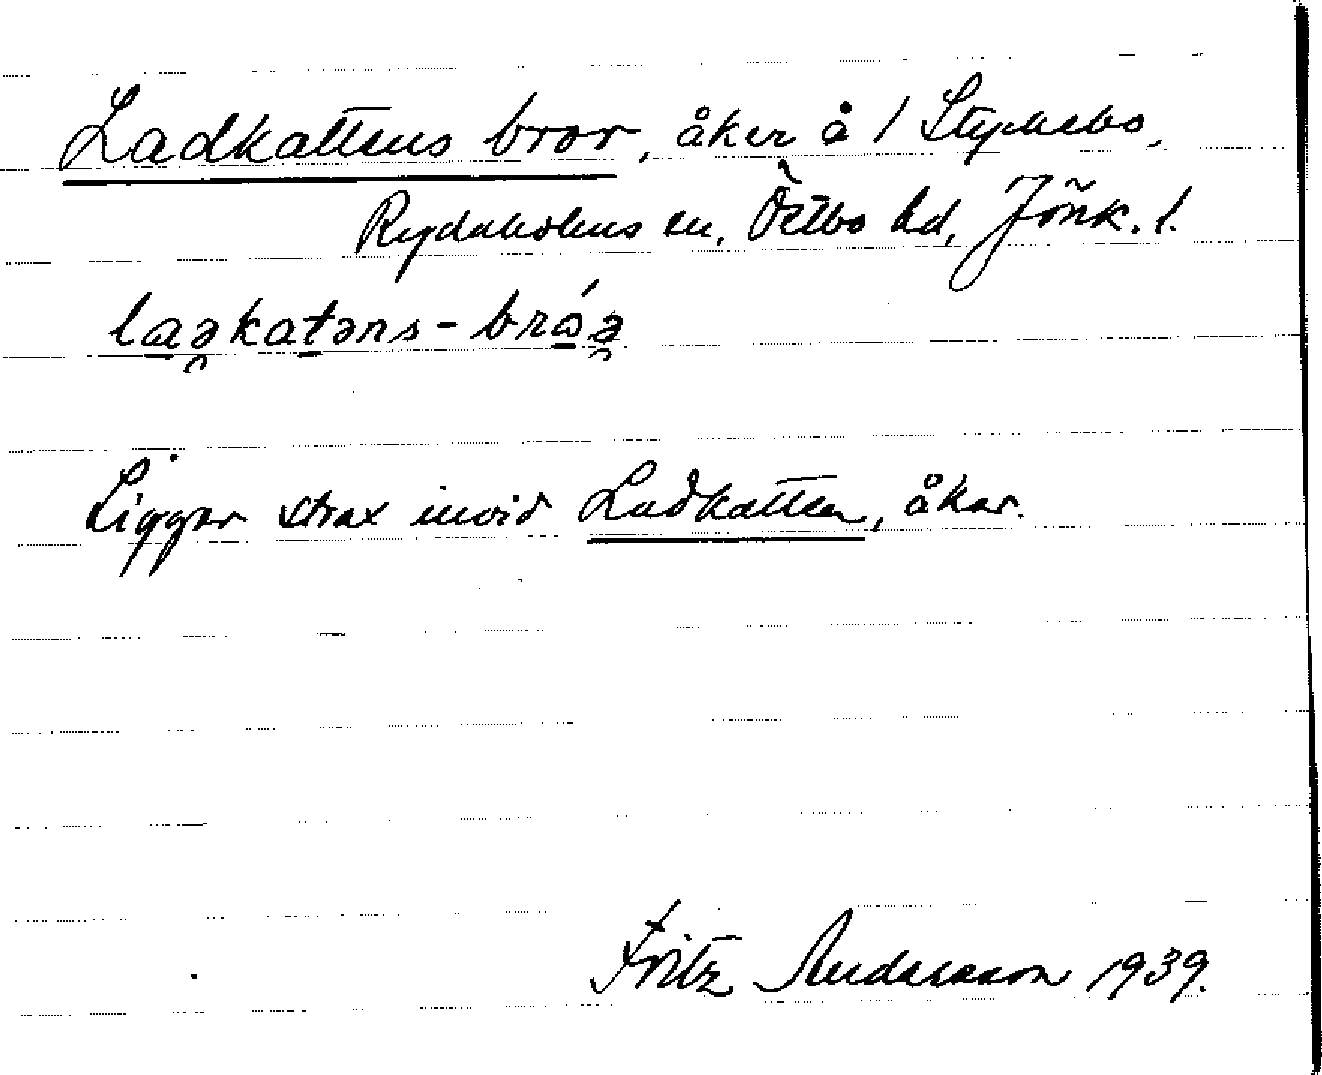 Ladkattens bror, åker å 1 Styckebo,
Rydaholms sn, Östbo hd, Jönk. l.
laə̯katəns-brǿə̯
Ligger strax invid Ladkatten, åker.
Fritz Andersson 1939.